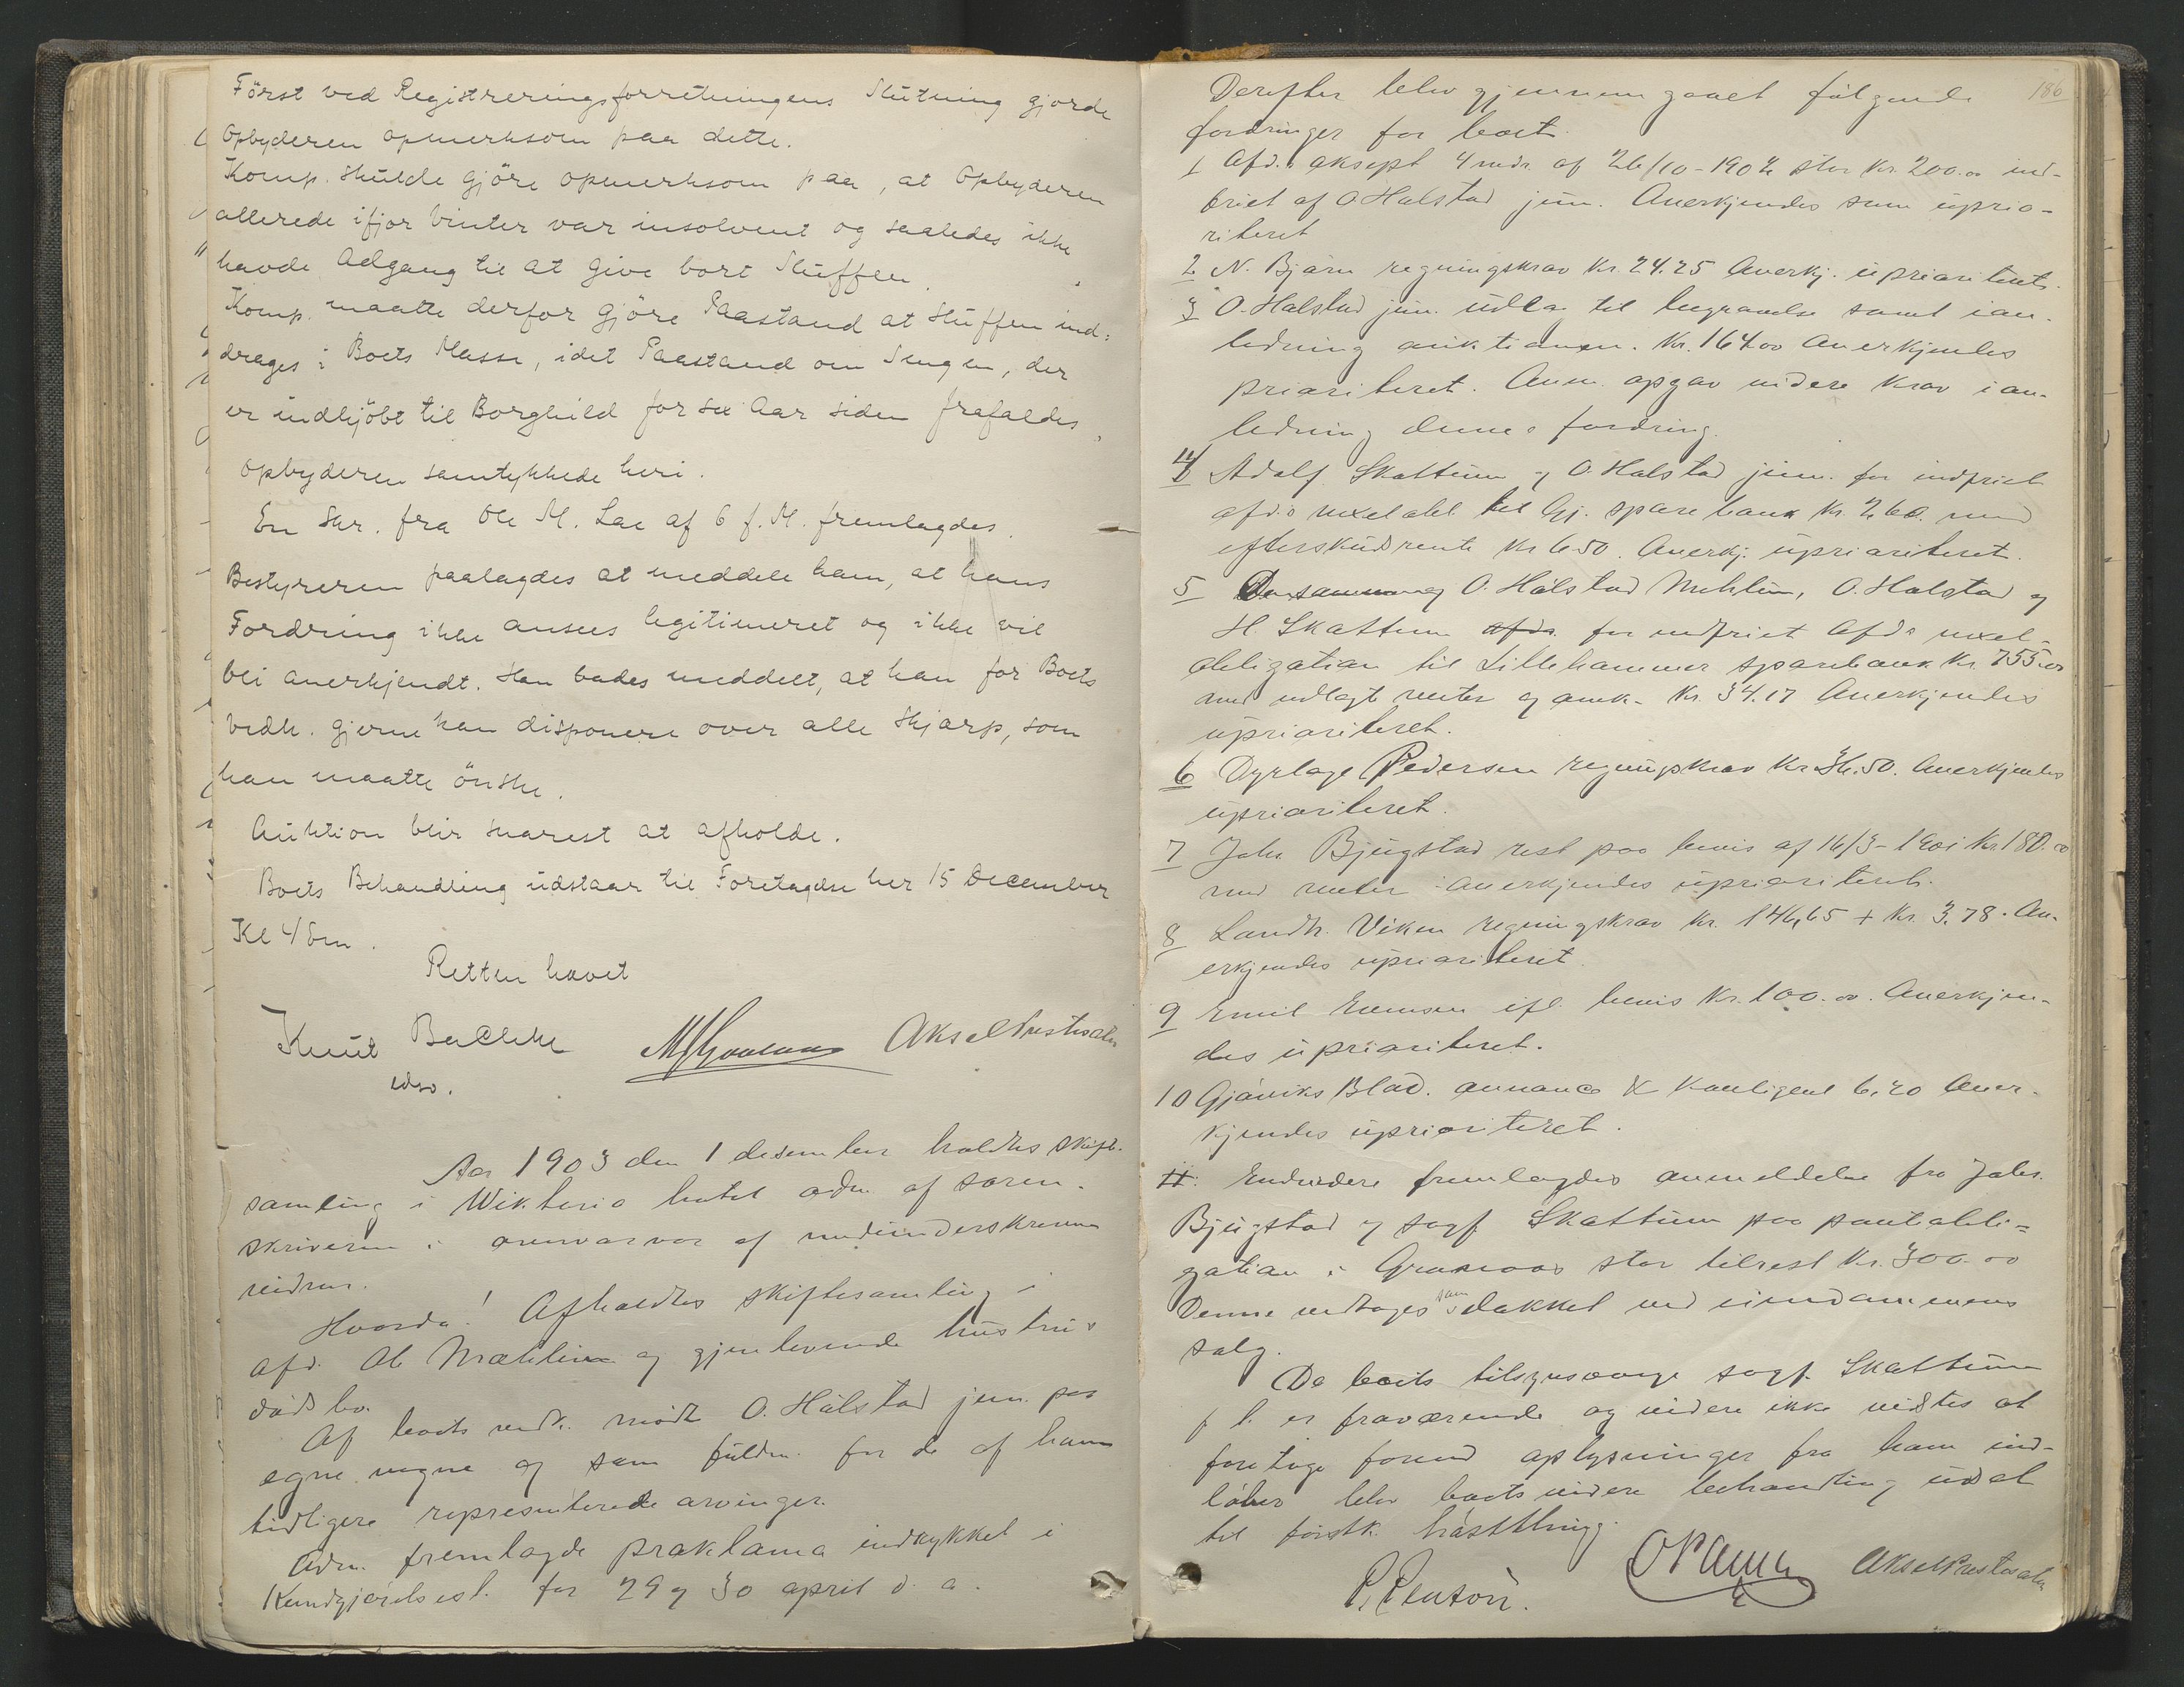 Först ved Registreringsforretningens Slutning gjorde
Opbyderen opmerksom paa dette.
Komp. skulde gjöre opmerksom paa, at Opbyderen
allerede ifjor vinter var insolvent og saaledes ikke
havde Adgang til at give bort Sluffen.
Komp. maatte derfor gjöre Paastand at Sluffen ind-
drages i Boets Masse, idet Paastand om Sengen, der
er indkjöbt til Borghild for sex Aar siden frafaldes.
Opbyderen samtykkede heri.
En Skr. fra Ole M. Lae af 6 f. M. fremlagdes.
Bestyreren paalagdes at meddele ham, at hans
Fordring ikke ansees legitimeret og ikke vil
bli anerkjendt. Han bades meddelt, at han for Boets
vedk. gjerne kan disponere over alle Skjærp, som
han maatte önske.
Auktion blir snarest at afholde.
Boets Behandling udstaar til Foretagelse her 15 December
Kl 4 Em.
Retten hævet
Knut Bachke
edso.
Aksel Prestesater
Aar 1903 den 1 desember holdtes skifte-
samling i Wiktoria hotel adm af soren-
skriveren i overvær af medunderskrevne
vidner.
Hvorda! Afholdtes skiftesamling i
afd. Ole Mæhlum og gjenlevende hustrus
dødsbo.
Af boets vedk. mødte O. Halstad jun. paa
egne vegne og som fuldm. for de af ham
tidligere representerede arvinger.
Adm. fremlagde proklama indrykket i
Kundgjørelsesl. for 29 og 30 april d. a.
186
Derefter blev gjennemgaaet følgende
fordringer for boet.
1 Afd.s aksept 4 mdr. af 26/10-1902 stor Kr. 200.00 ind-
friet af O Halstad jun. Anerkjendes som uprio-
riteret
2 N. Bjørn regningskrav Kr. 24.25 Anerkj. uprioriteret.
3 O. Halstad jun. udlæg til begravelse samt i an-
ledning auktionen. Kr. 164.00 Anerkjendes
prioriteret. Anm. opgav videre krav i an-
ledning denne fordring.
4 Adolf Skattum og O. Halstad jun. for indfriet
afd.s vexelobl. til Gj. sparebank Kr. 260. med
efterskudsrente Kr 6.50. Anerkj. uprioriteret.
5 Den samme og O. Halstad Mæhlum, O. Halstad og
H. Skattum afds. for indfriet Afd.s vexel-
obligation til Lillehammer sparebank Kr. 755.00
med udlagt renter og omk. Kr. 34.17 Anerkjendes
uprioriteret.
6 Dyrlæge Pedersen regningskrav Kr 36.50. Anerkjendes
uprioriteret.
7 Johs. Bjugstad rest paa bevis af 16/3-1901 Kr. 180.00
med renter anerkjendes uprioriteret.
8 Landh. Viken regningskrav Kr. 146,65 + Kr. 3.78. An-
erkjendes uprioriteret.
9 Emil Evensen ifl. bevis Kr. 100.00. Anerkjen-
des uprioriteret.
10 Gjøviks Blad. annonce & kontigent 6,20 Aner-
kjendes uprioriteret.
11. Endvidere fremlagdes anmeldelse fra Johs.
Bjugstad og sagf. Skattum paa pantobli-
gation i stor tilrest Kr. 300.00
Denne vedtages som dækket ved eiendommens
salg.
Da boets tilsynsmænd sagf. Skattum
p t. er fraværende og videre ikke vidstes at
foretage forend oplysninger fra ham ind-
løber blev boets videre behandling udsat
til forstk. høstthing.
Aksel Prestesater